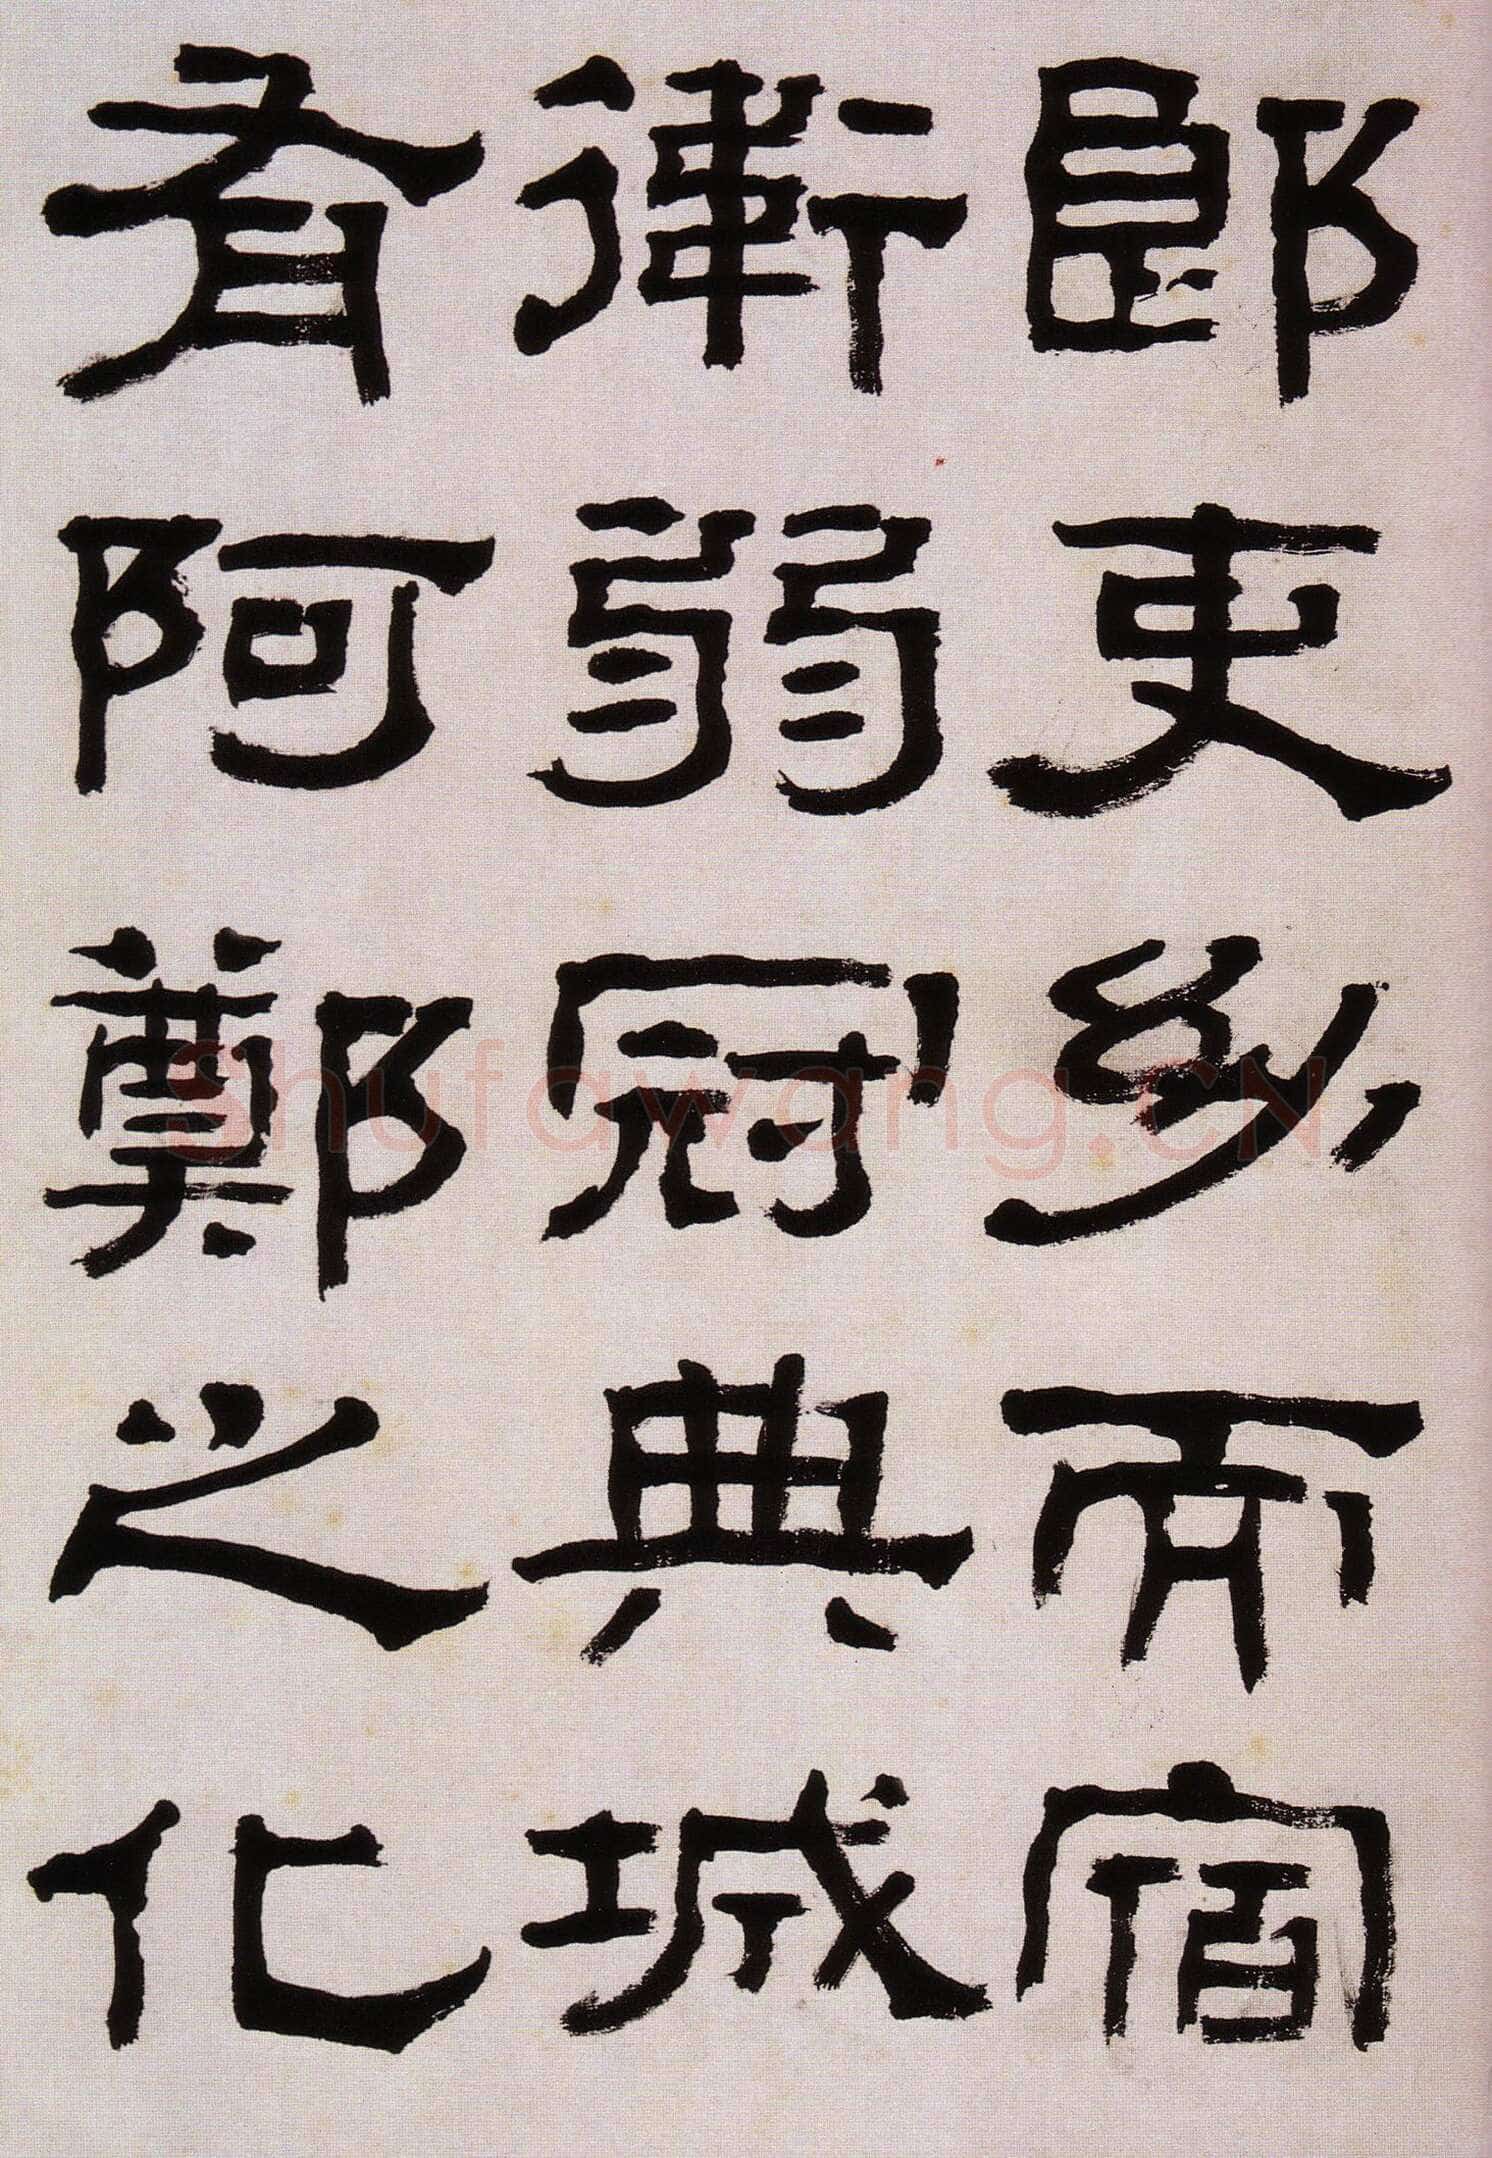 郎吏幼而宿
衛弱冠典城
有阿鄭之化
Shufawang.CN